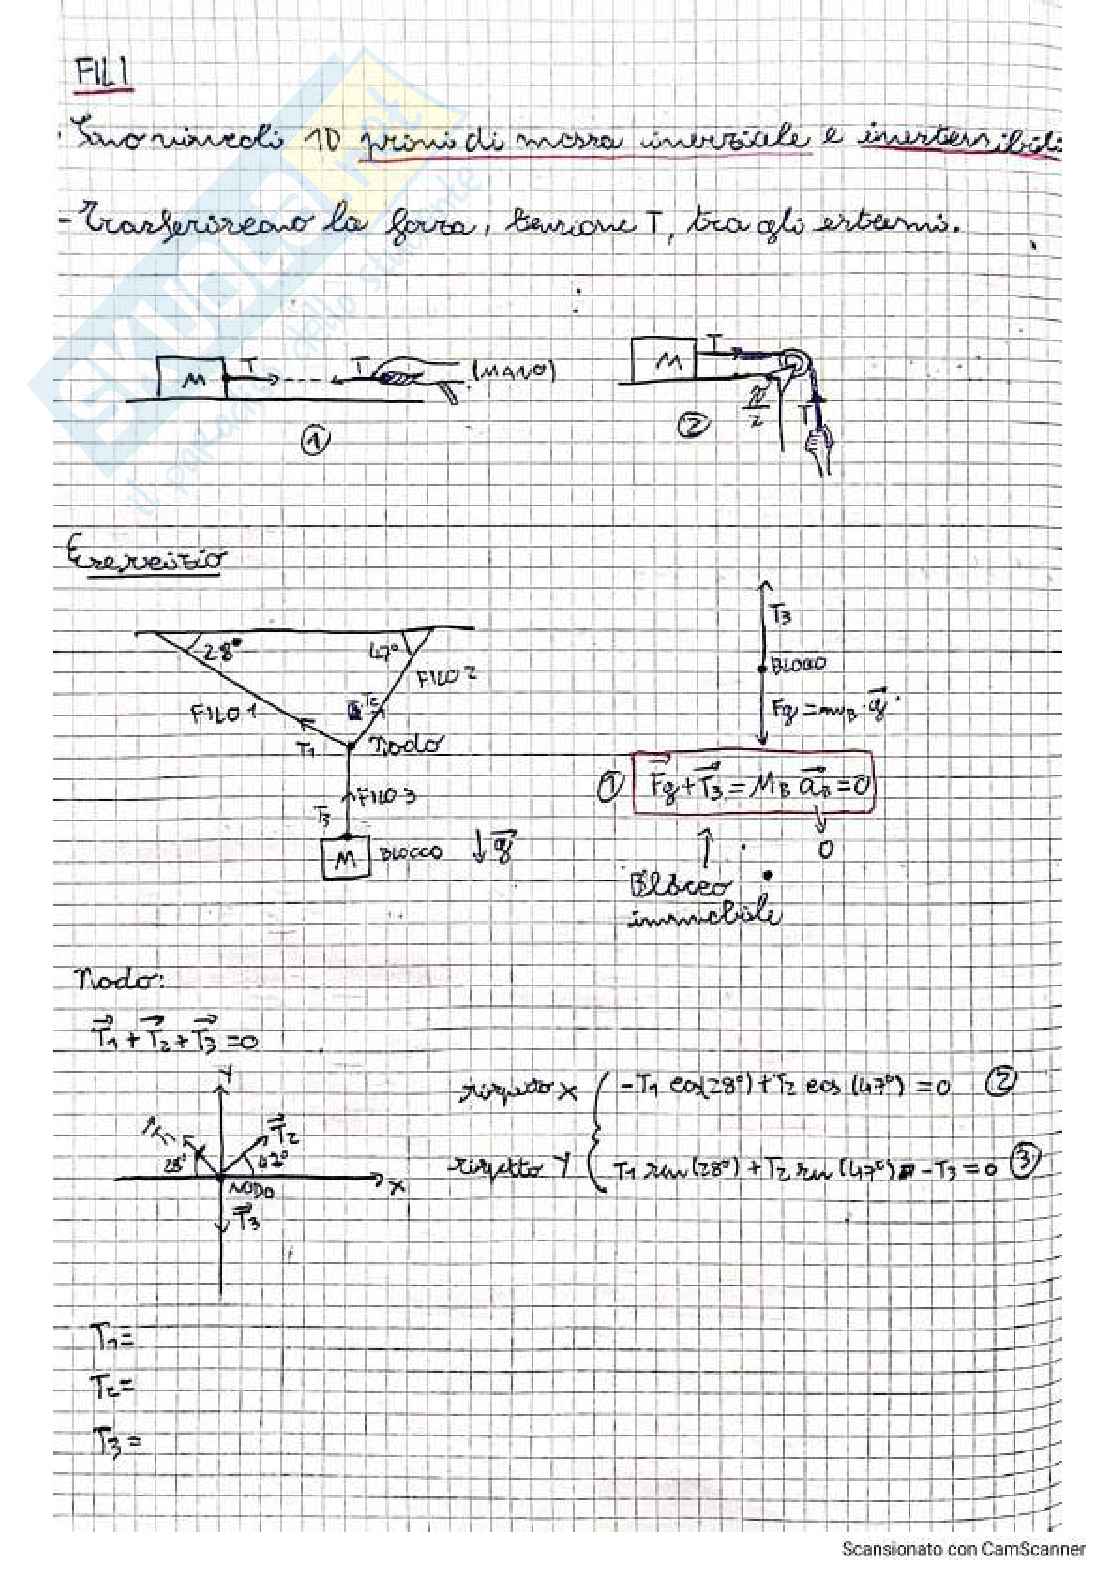 FILI
· Sono vincoli 1D privi di massa inerziale e inestensibili
- Trasferiscono la forza, tensione T, tra gli estremi.
M T T (MANO)
①
M T π/2 T
②
Esercizio
28° 47°
FILO 1 FILO 2
T₁ T₂ nodo
T₃ FILO 3
M BLOCCO ↓ g⃗
T₃
BLOCCO
Fg = m_B · g⃗
① F⃗g + T⃗₃ = M_B a⃗_B = 0
0
Blocco
immobile
Nodo:
T⃗₁ + T⃗₂ + T⃗₃ = 0
Y
T⃗₁ T⃗₂
28° 47°
NODO X
T⃗₃
rispetto X { -T₁ cos(28°) + T₂ cos(47°) = 0 ②
rispetto Y { T₁ sen(28°) + T₂ sen(47°) - T₃ = 0 ③
T₁ =
T₂ =
T₃ =
Scansionato con CamScanner
SKUOLA.net
il paradiso dello studente